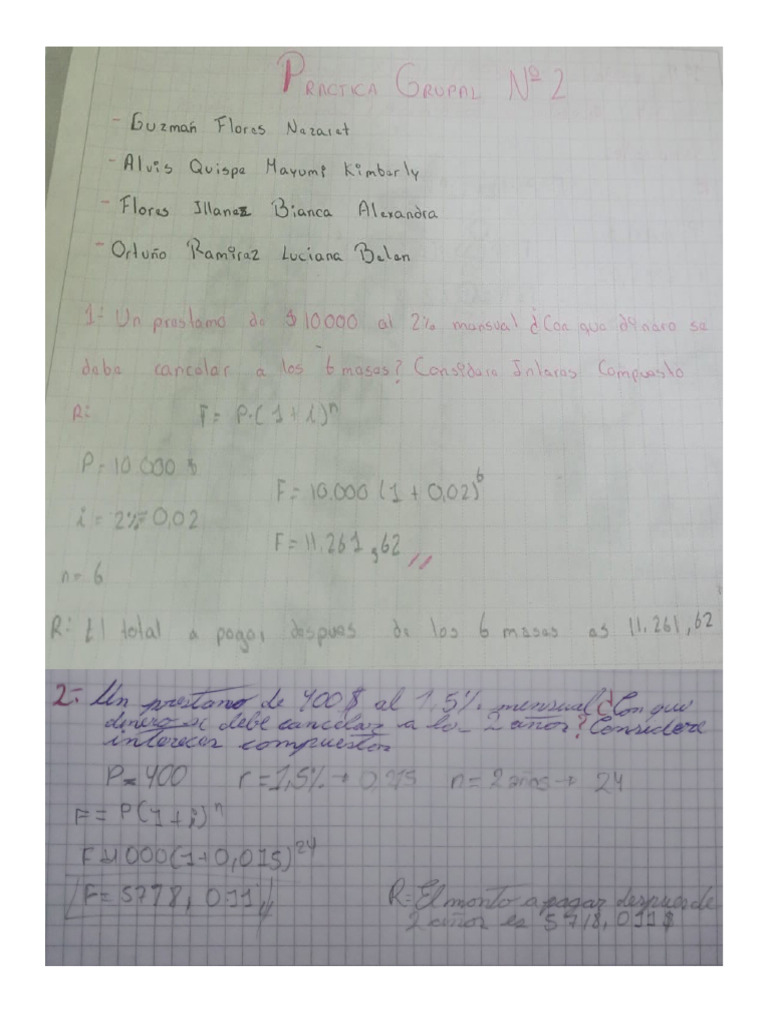 PRACTICA GRUPAL Nº 2
- Guzmán Flores Nazaret
- Alvis Quispe Mayumi Kimberly
- Flores Illanez Bianca Alexandra
- Ortuño Ramirez Luciana Belen
1: Un prestamo de $10000 al 2% mensual ¿Con que dinero se
debe cancelar a los 6 meses? Considere Interes Compuesto
R: F = P·(1 + i)ⁿ
P = 10.000 $
F = 10.000 (1 + 0,02)⁶
i = 2% = 0,02
F = 11.261,62 //
n = 6
R: El total a pagar despues de los 6 meses es 11.261,62
2- Un prestano de 400$ al 1,5% mensual ¿Con que
dinero se debe cancelar a lo 2 años? Considere
intereces compuestos
P = 400 r = 1,5% → 0,015 n = 2 años → 24
F = P(1 + i)ⁿ
000(1+0,015)²⁴
F = 5778,011 //
R= El monto a pagar despues de
2 años es 5718,011$